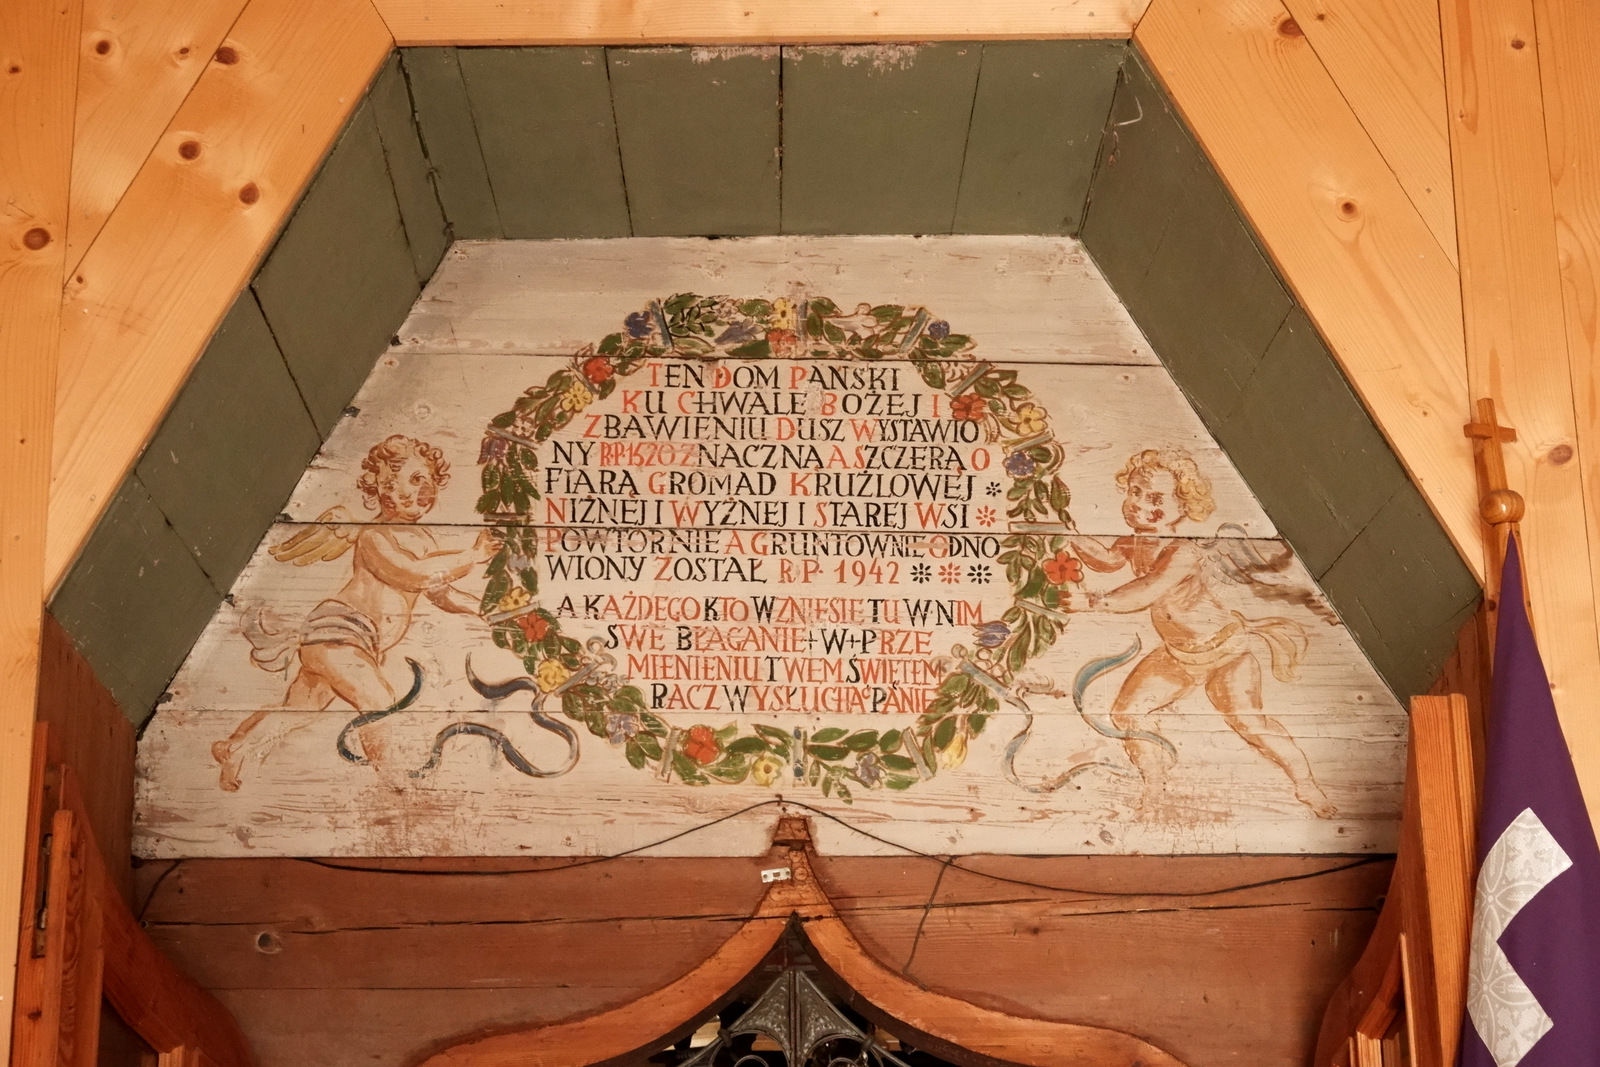 TEN DOM PAŃSKI
KU CHWALE BOŻEJ I
ZBAWIENIU DUSZ WYSTAWIO
NY R·P·1520 ZNACZNĄ A SZCZERĄ O
FIARĄ GROMAD KRUŻLOWEJ
NIŻNEJ I WYŻNEJ I STAREJ WSI
POWTÓRNIE A GRUNTOWNIE ODNO
WIONY ZOSTAŁ R·P· 1942
A KAŻDEGO KTO WZNIESIE TU W NIM
SWE BŁAGANIE + W + PRZE
MIENIENIU TWEM ŚWIĘTEM
RACZ WYSŁUCHAĆ PANIE